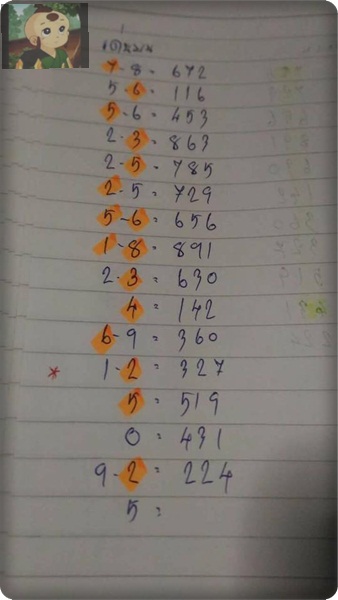 7-8 = 672
5-6 = 116
5-6 = 453
2-3 = 863
2-5 = 785
2-5 = 729
5-6 = 656
1-8 = 891
2-3 = 630
4 = 142
6-9 = 360
* 1-2 = 327
5 = 519
0 = 431
9-2 = 224
5 =